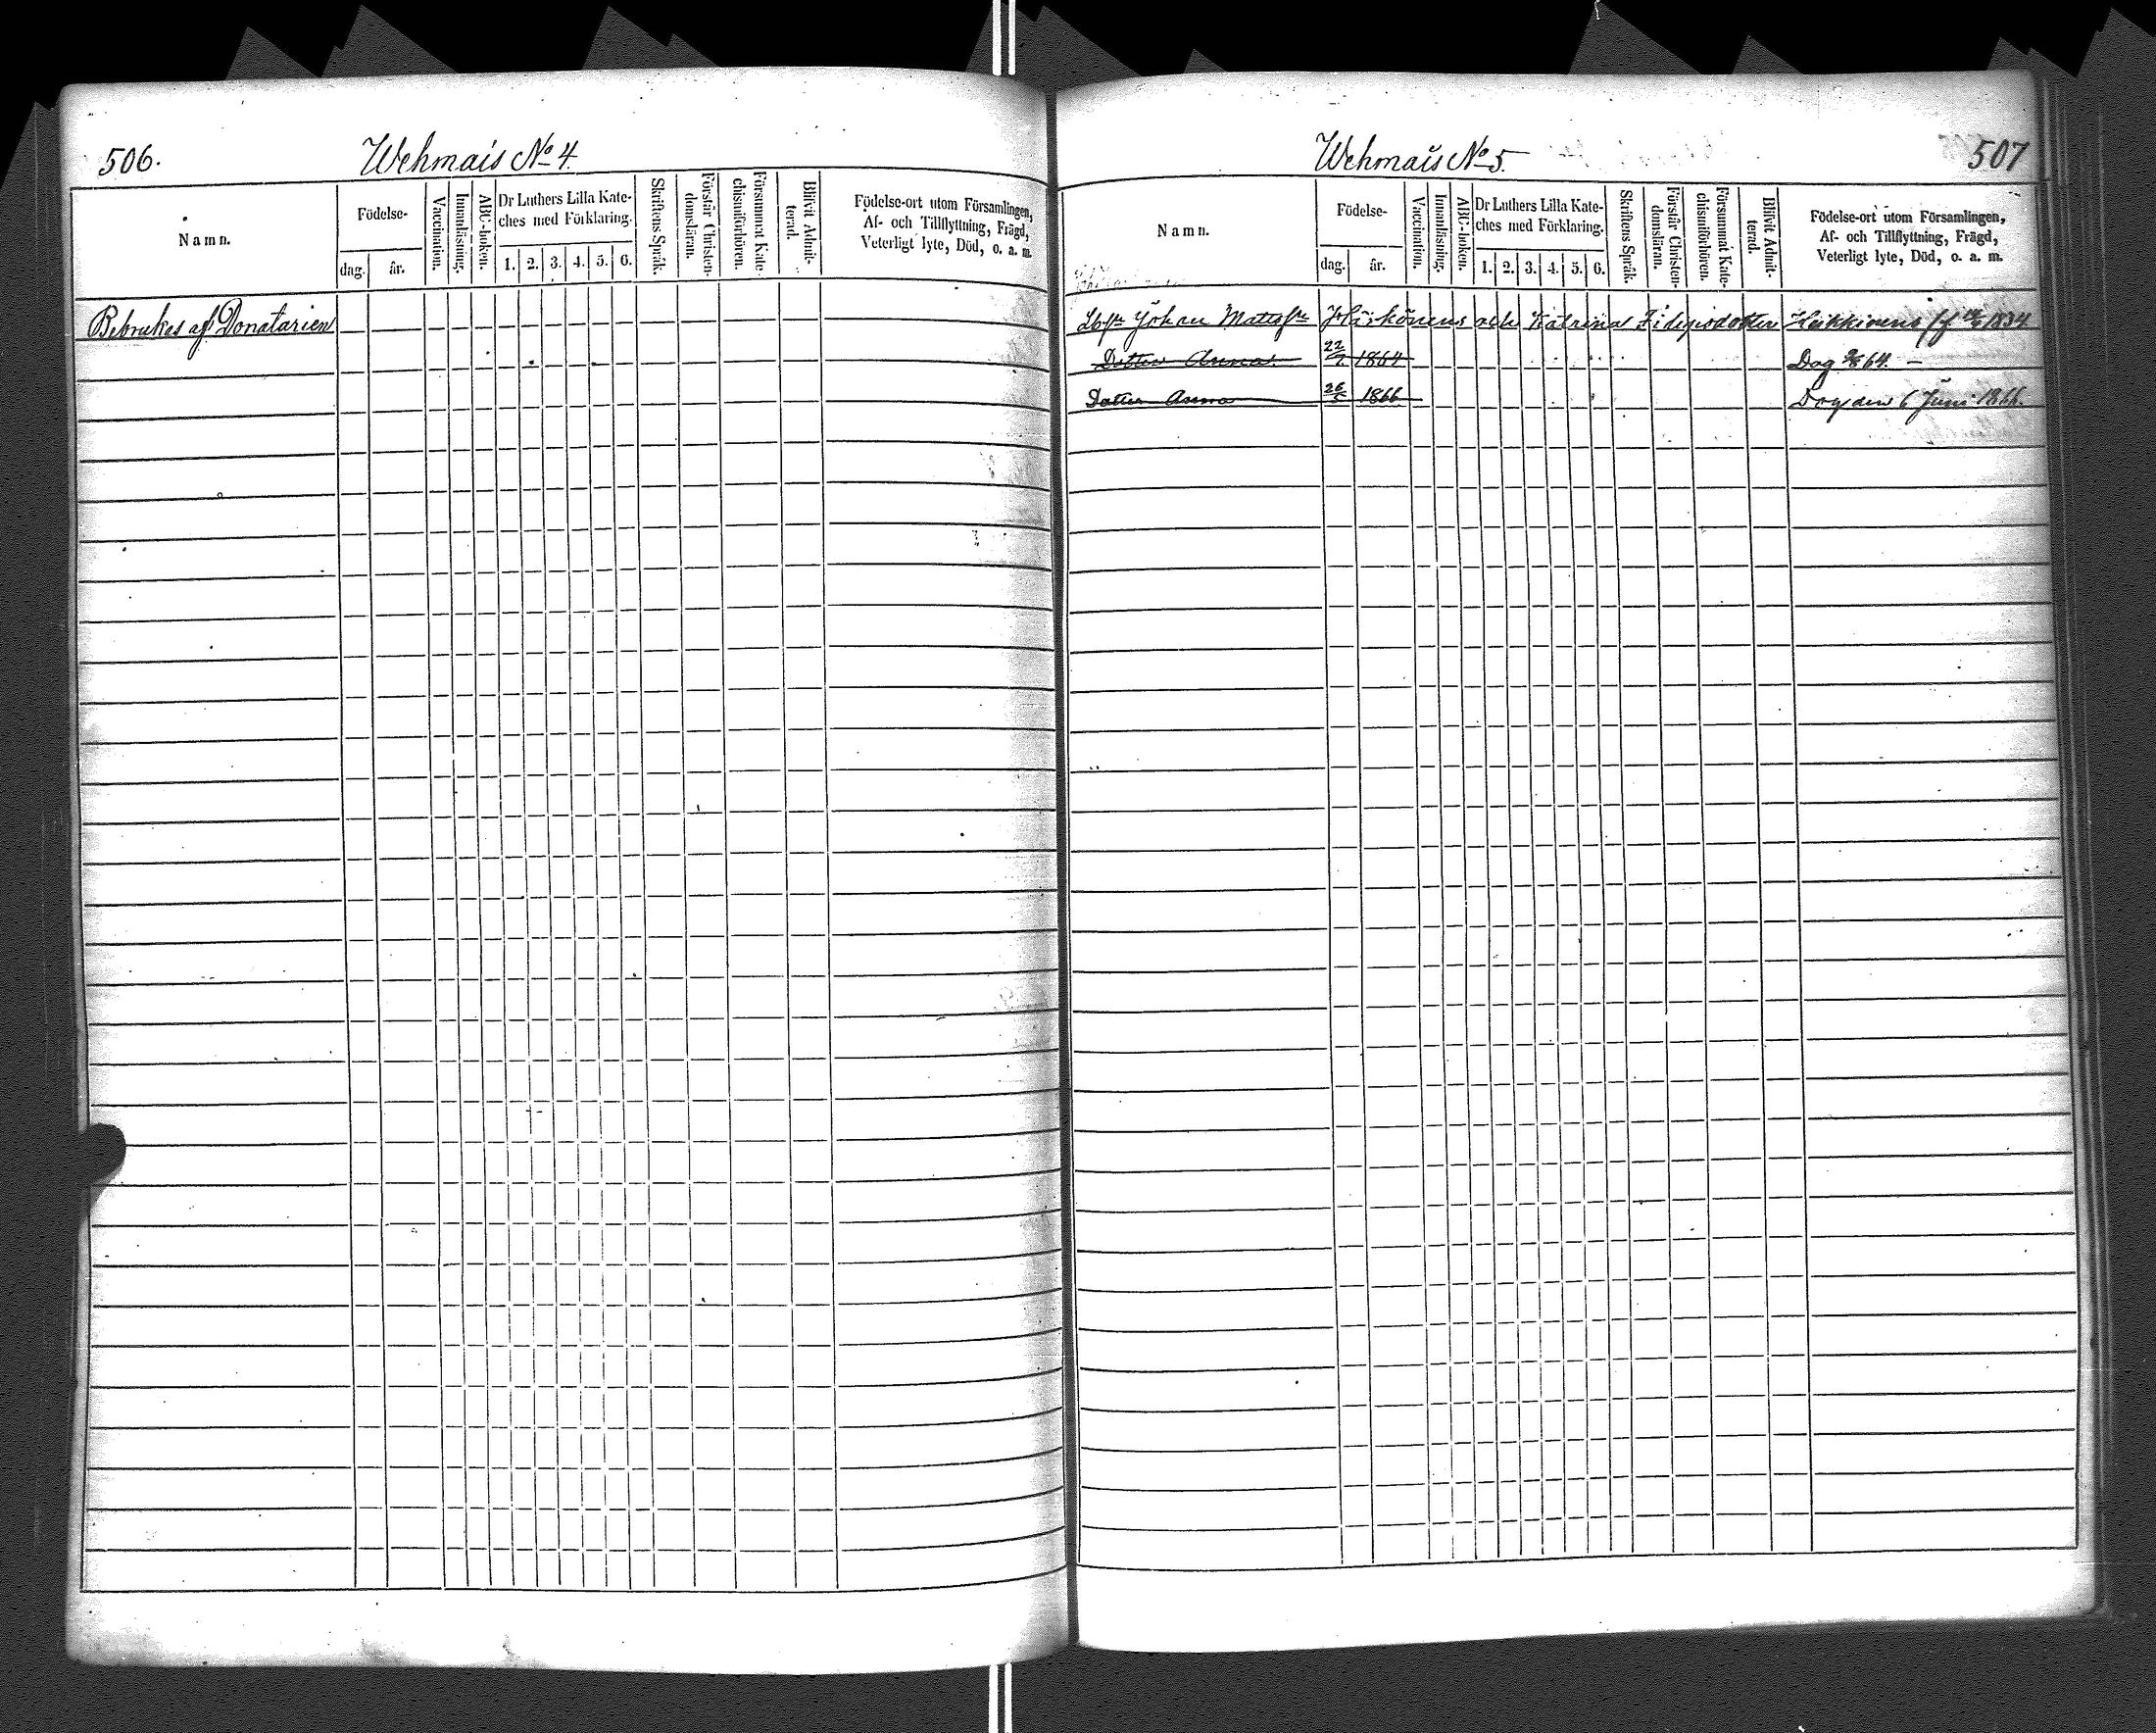 506.
Wehmais No 4.
Namn.
Födelse-
dag.
år.
Vaccination.
Innanläsning.
ABC-boken.
Dr Luthers Lilla Kate-
ches med Förklaring.
1. 2. 3. 4. 5. 6.
Skriftens Språk.
Förstår Christen-
domsläran.
Försummat Kate-
chismiförhören.
Blifvit Admit-
terad.
Födelse-ort utom Församlingen,
Af- och Tillflyttning, Frägd,
Veterligt lyte, Död, o. a. m.
Bebrukas af Donatarien
Wehmais No 5.
507
Namn.
Födelse-
dag.
år.
Vaccination.
Innanläsning.
ABC-boken.
Dr Luthers Lilla Kate-
ches med Förklaring.
1. 2. 3. 4. 5. 6.
Skriftens Språk.
Förstår Christen-
domsläran.
Försummat Kate-
chismiförhören.
Blifvit Admit-
terad.
Födelse-ort utom Församlingen,
Af- och Tillflyttning, Frägd,
Veterligt lyte, Död, o. a. m.
Johan Mattss. och Katrina 1834
Dotter Anna 22/7 1864 Dog 64.
Dotter Anna 26/5 1866 Dog den 6 Juni 1866.